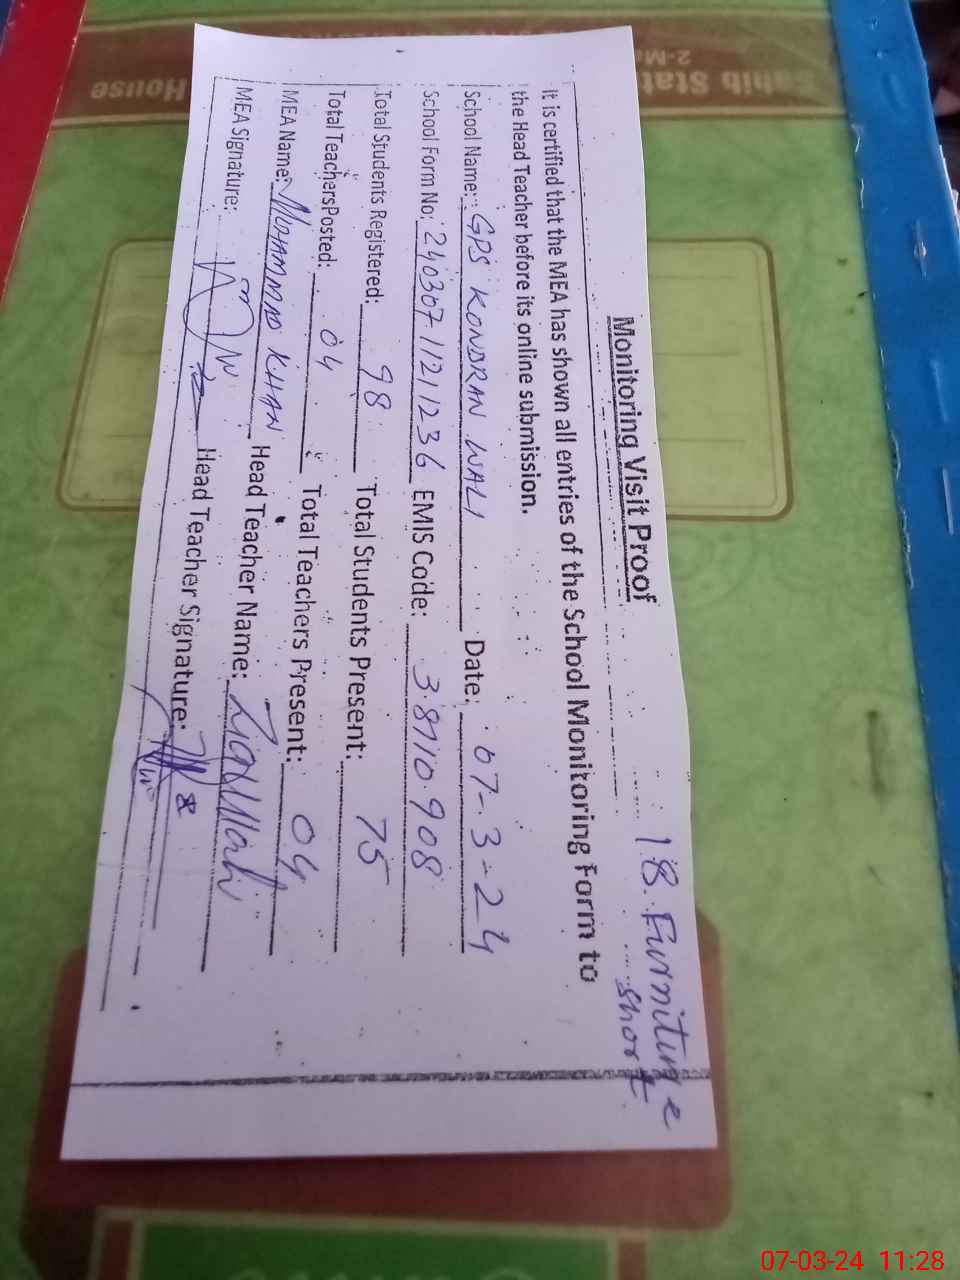 Monitoring Visit Proof
18. Furniture short
it is certified that the MEA has shown all entries of the School Monitoring Form to
the Head Teacher before its online submission.
School Name: GPS KONDRAN WALI Date: 07-3-24
School Form No: 240307-1121236 EMIS Code: 38710908
Total Students Registered: 98 Total Students Present: 75
Total TeachersPosted: 04 Total Teachers Present: 04
MEA Name: MOHAMMAD KHAN Head Teacher Name:
MEA Signature: Head Teacher Signature:
House
2-M
07-03-24 11:28